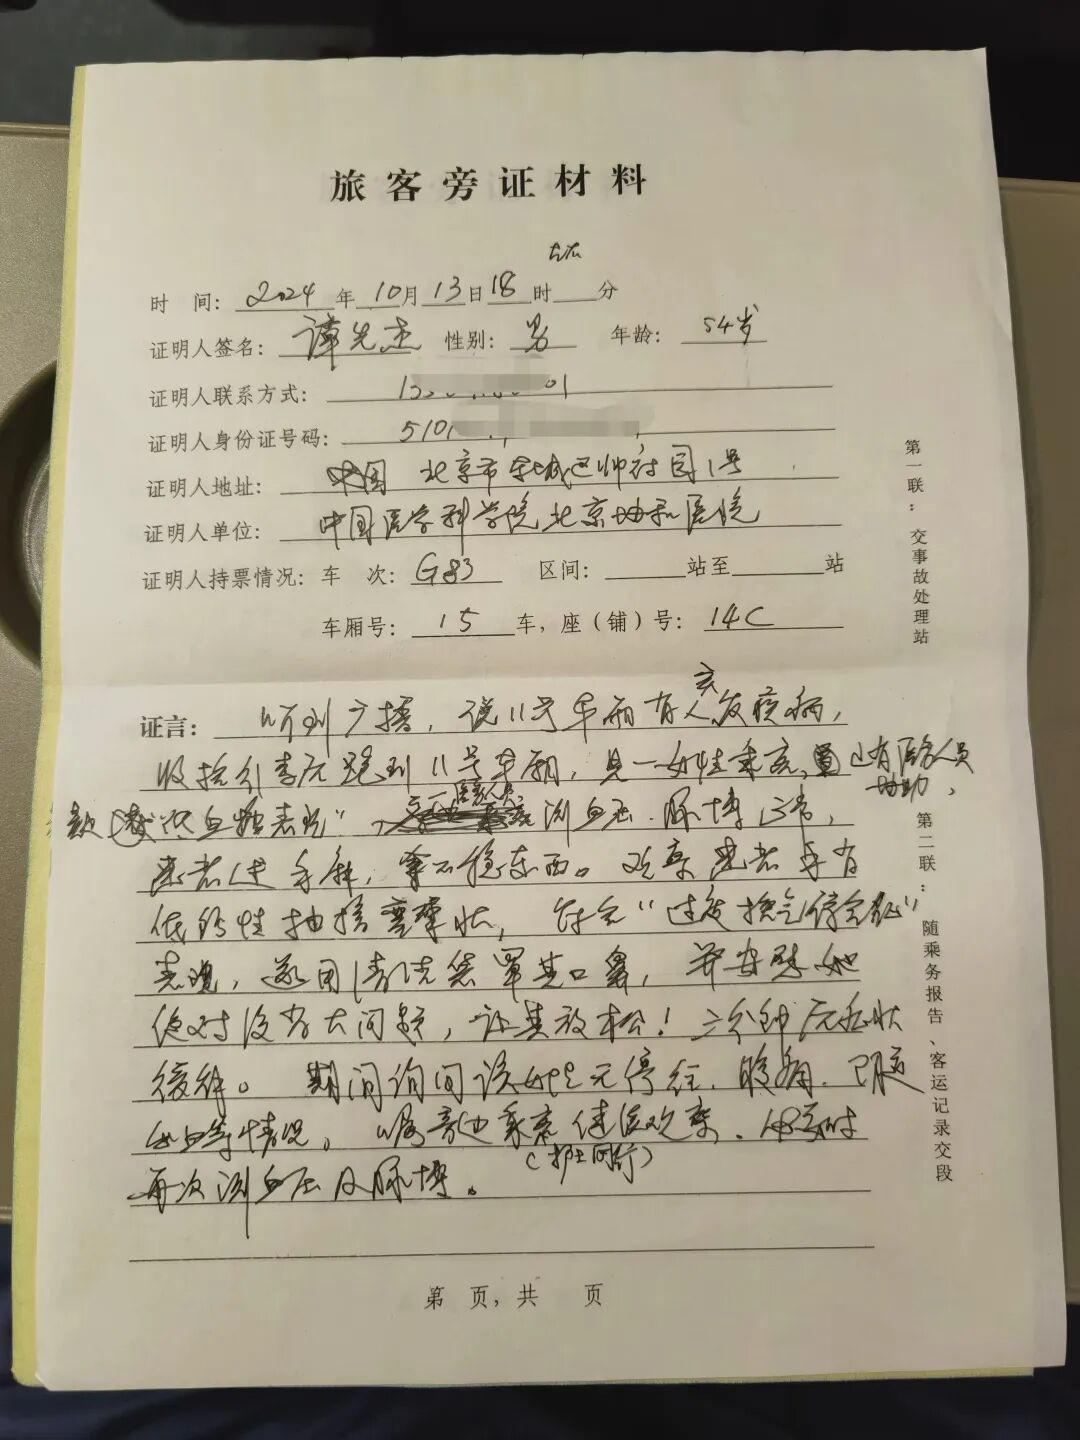 旅客旁证材料
左右
时 间：2024年10月13日18时 分
证明人签名：谭先杰 性别：男 年龄：54岁
证明人联系方式：
证明人身份证号码：510
证明人地址：中国 北京市东城区帅府园1号
证明人单位：中国医学科学院北京协和医院
证明人持票情况：车 次：G83 区间： 站至 站
车厢号：15车，座（铺）号：14C
证言：听到广播，说11号车厢有人发疾病，
跑到11号车厢，见一女性乘客，已有医务人员
协助，
"低血糖表现"，测血压、脉搏正常，
患者述手麻，拿不稳东西。观察患者手有
性抽搐 状，符合"过度换气综合征"
表现，遂用清洁袋罩其口鼻，并安慰她
绝对没有大问题，让其放松！三分钟后症状
缓解。期间询问该女士无停经、腹痛、
出血等情况。嘱旁边乘客继续观察、必要时
（护士同行）
再次测血压及脉搏。
第 页，共 页
第一联：交事故处理站
第二联：随乘务报告、客运记录交段